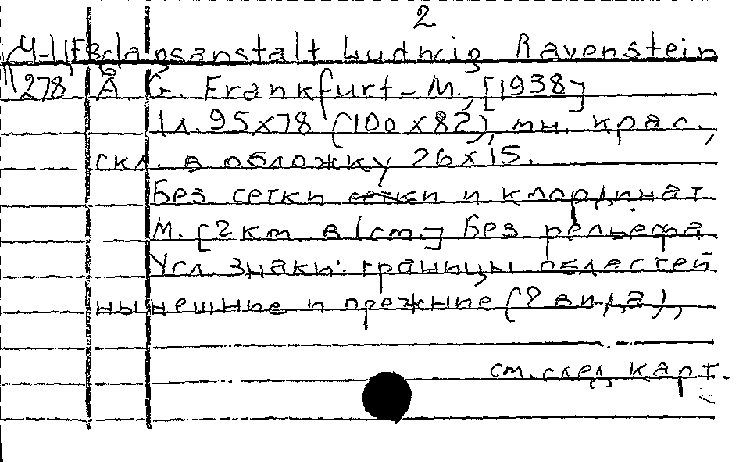 2
Ч-1/ Erdagsanstalt Ludwig Ravenstein
278 A G. Frankfurt-M, [1938]
1 л. 95x78 (100x82), мн. крас.,
скл. в обложку 26x15.
Без сетки сетки и клординат
М. [2 km в 1 cm.] Без рельефа
Усл. знаки: границы областей
нынешние и прежние (2 вида),
см. след. карт.